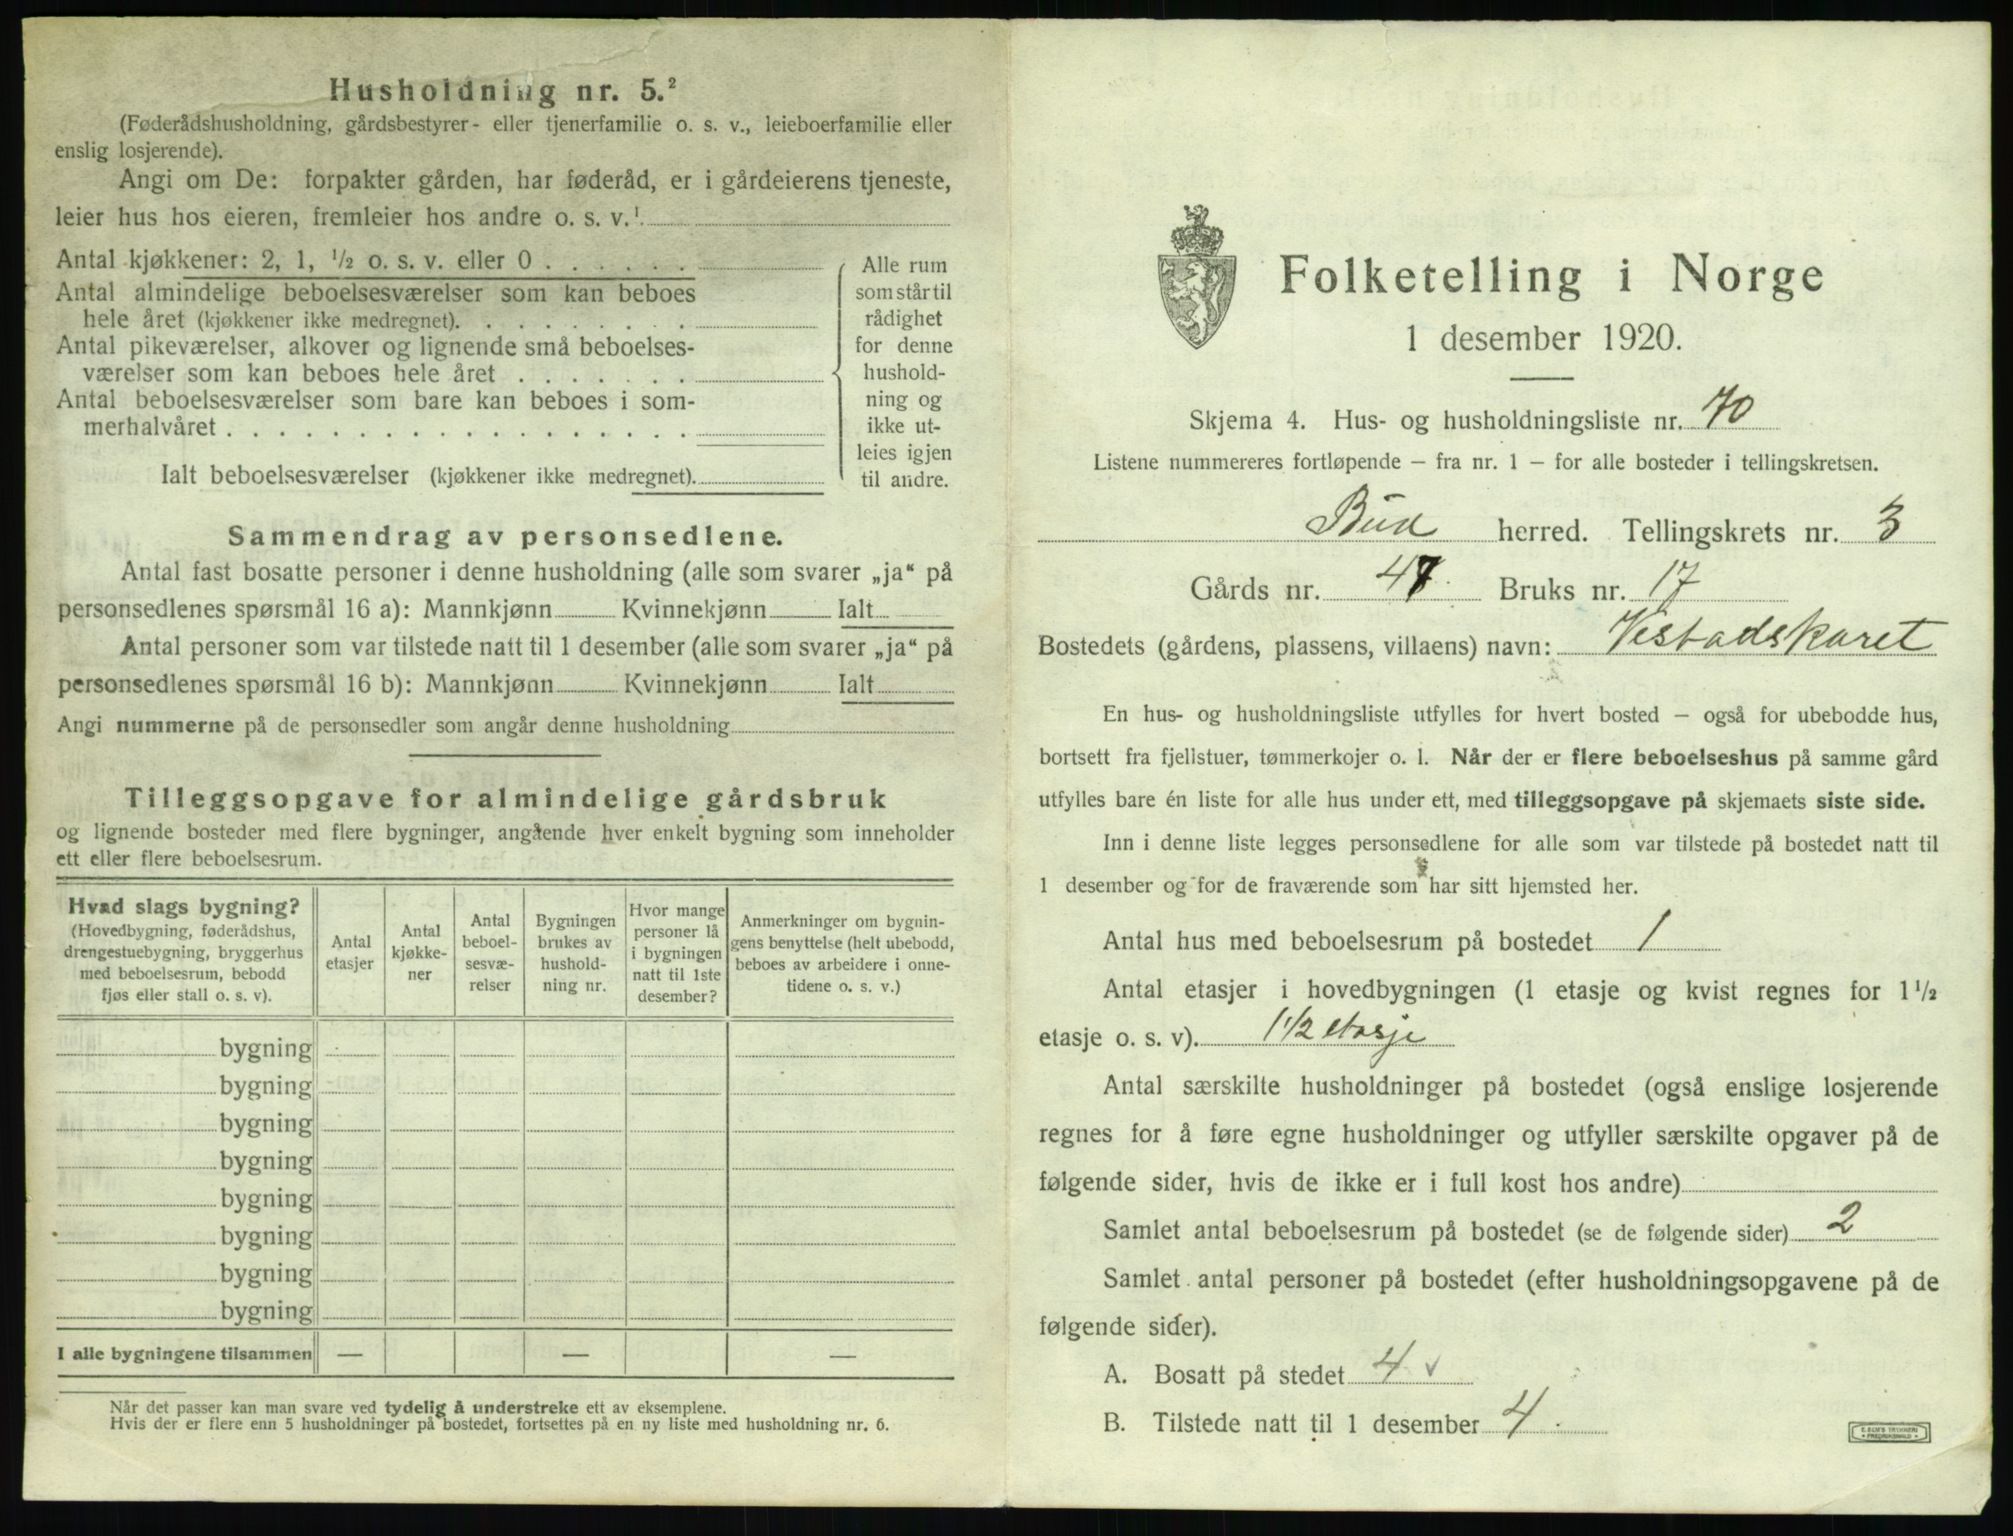 Husholdning nr. 5.²
(Føderådshusholdning, gårdsbestyrer- eller tjenerfamilie o. s. v., leieboerfamilie eller
enslig losjerende).
Angi om De: forpakter gården, har føderåd, er i gårdeierens tjeneste,
leier hus hos eieren, fremleier hos andre o. s. v.¹
Antal kjøkkener: 2, 1, ½ o. s. v. eller 0 . . . . . .
Antal almindelige beboelsesværelser som kan beboes
hele året (kjøkkener ikke medregnet). . . . . . . . .
Antal pikeværelser, alkover og lignende små beboelses-
værelser som kan beboes hele året . . . . . . .
Antal beboelsesværelser som bare kan beboes i som-
merhalvåret . . . . . . . . . . . . . . . . . .
Ialt beboelsesværelser (kjøkkener ikke medregnet).
Alle rum
som står til
rådighet
for denne
hushold-
ning og
ikke ut-
leies igjen
til andre.
Sammendrag av personsedlene.
Antal fast bosatte personer i denne husholdning (alle som svarer „ja“ på
personsedlenes spørsmål 16 a): Mannkjønn Kvinnekjønn Ialt
Antal personer som var tilstede natt til 1 desember (alle som svarer „ja“ på
personsedlenes spørsmål 16 b): Mannkjønn Kvinnekjønn Ialt
Angi nummerne på de personsedler som angår denne husholdning
Tilleggsopgave for almindelige gårdsbruk
og lignende bosteder med flere bygninger, angående hver enkelt bygning som inneholder
ett eller flere beboelsesrum.
Hvad slags bygning?
(Hovedbygning, føderådshus,
drengestuebygning, bryggerhus
med beboelsesrum, bebodd
fjøs eller stall o. s. v).
Antal
etasjer
Antal
kjøkke-
ner
Antal
beboel-
sesvæ-
relser
Bygningen
brukes av
hushold-
ning nr.
Hvor mange
personer lå
i bygningen
natt til 1ste
desember?
Anmerkninger om bygnin-
gens benyttelse (helt ubebodd,
beboes av arbeidere i onne-
tidene o. s. v.)
bygning
bygning
bygning
bygning
bygning
bygning
bygning
bygning
I alle bygningene tilsammen — — —
Når det passer kan man svare ved tydelig å understreke ett av eksemplene.
Hvis der er flere enn 5 husholdninger på bostedet, fortsettes på en ny liste med husholdning nr. 6.
Folketelling i Norge
1 desember 1920.
Skjema 4. Hus- og husholdningsliste nr. 70
Listene nummereres fortløpende — fra nr. 1 — for alle bosteder i tellingskretsen.
Bud herred. Tellingskrets nr. 3
Gårds nr. 47. Bruks nr. 17
Bostedets (gårdens, plassens, villaens) navn: Vestadskaret
En hus- og husholdningsliste utfylles for hvert bosted — også for ubebodde hus,
bortsett fra fjellstuer, tømmerkojer o. l. Når der er flere beboelseshus på samme gård
utfylles bare én liste for alle hus under ett, med tilleggsopgave på skjemaets siste side.
Inn i denne liste legges personsedlene for alle som var tilstede på bostedet natt til
1 desember og for de fraværende som har sitt hjemsted her.
Antal hus med beboelsesrum på bostedet 1
Antal etasjer i hovedbygningen (1 etasje og kvist regnes for 1½
etasje o. s. v). 1½ etasje
Antal særskilte husholdninger på bostedet (også enslige losjerende
regnes for å føre egne husholdninger og utfyller særskilte opgaver på de
følgende sider, hvis de ikke er i full kost hos andre)
Samlet antal beboelsesrum på bostedet (se de følgende sider) 2
Samlet antal personer på bostedet (efter husholdningsopgavene på de
følgende sider).
A. Bosatt på stedet 4 ✓
B. Tilstede natt til 1 desember 4